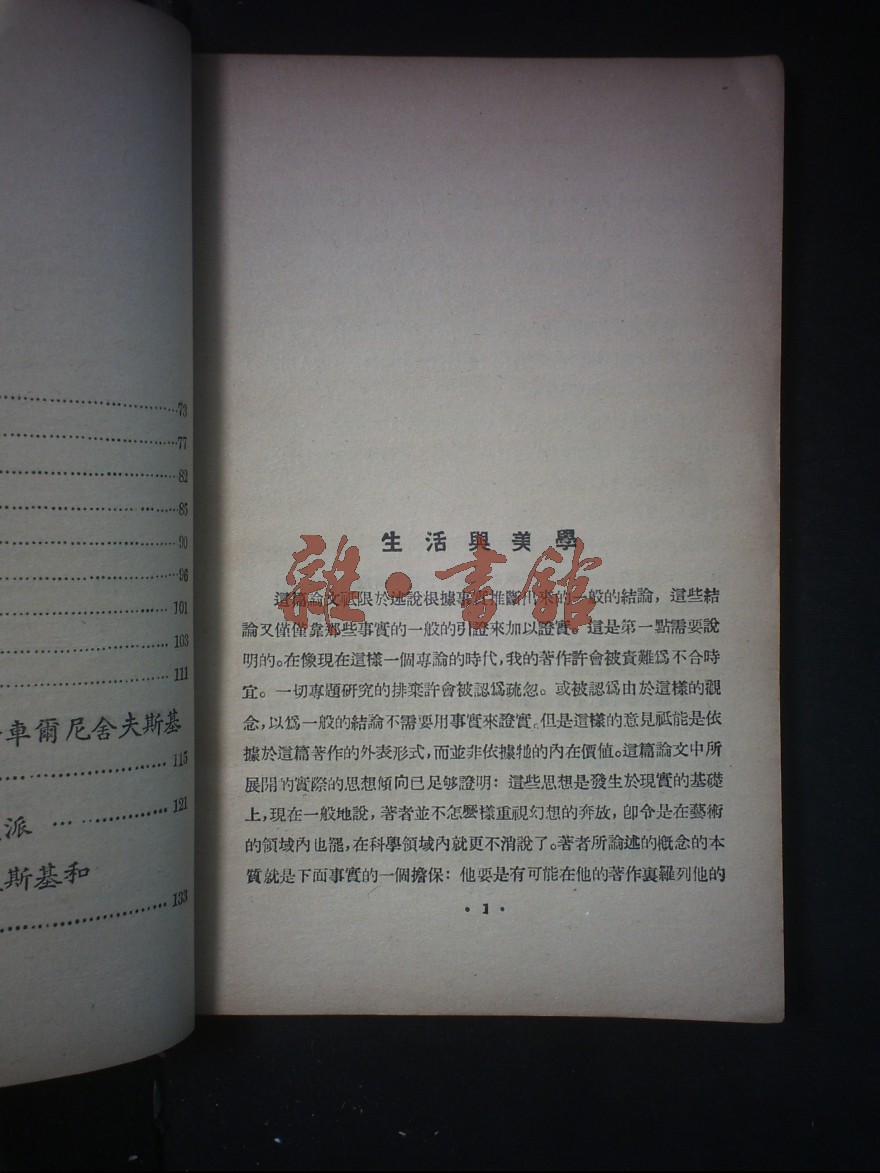 73
77
82
85
90
96
101
103
111
車爾尼舍夫斯基
115
派 121
斯基和
133
生活與美學
雜·書館
這篇論文祇限於述說根據事實推斷出來的一般的結論，這些結
論又僅僅靠那些事實的一般的引證來加以證實。這是第一點需要說
明的。在像現在這樣一個專論的時代，我的著作許會被責難爲不合時
宜。一切專題研究的排棄許會被認爲疏忽。或被認爲由於這樣的觀
念，以爲一般的結論不需要用事實來證實。但是這樣的意見祇能是依
據於這篇著作的外表形式，而並非依據牠的內在價值。這篇論文中所
展開的實際的思想傾向已足够證明：這些思想是發生於現實的基礎
上，現在一般地說，著者並不怎麼樣重視幻想的奔放，卽令是在藝術
的領域內也罷，在科學領域內就更不消說了。著者所論述的概念的本
質就是下面事實的一個擔保：他要是有可能在他的著作裏羅列他的
·1·